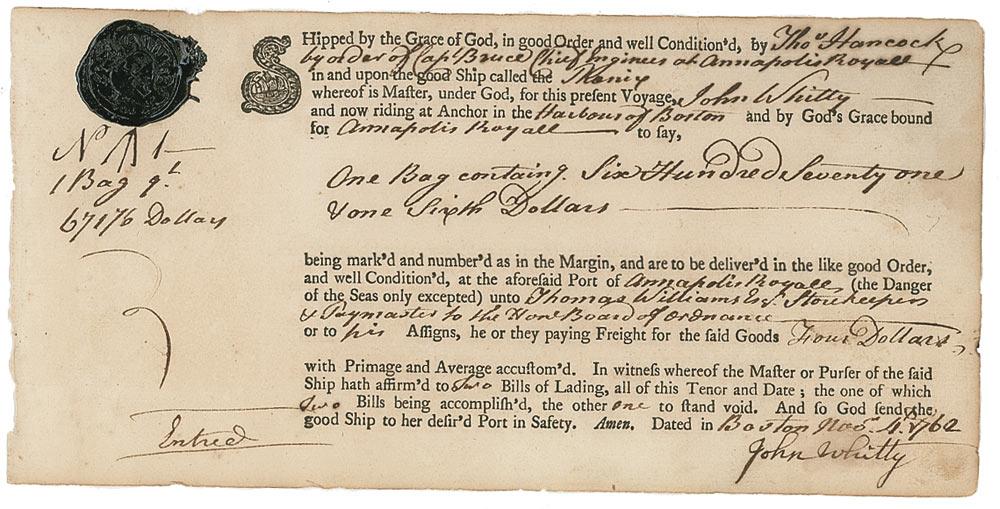 SHipped by the Grace of God, in good Order and well Condition'd, by Tho^s Hancock
by order of Cap^t Bruce Chief Engineer at Annapolis Royall
in and upon the good Ship called the Phenix
whereof is Maſter, under God, for this preſent Voyage, John Whitty
and now riding at Anchor in the Harbour of Boston and by God's Grace bound
for Annapolis Royall to ſay,
N 1
1 Bag q^t
671 1/6 Dollars
One Bag containg. Six Hundred Seventy one
& one Sixth Dollars
being mark'd and number'd as in the Margin, and are to be deliver'd in the like good Order,
and well Condition'd, at the aforeſaid Port of Annapolis Royall (the Danger
of the Seas only excepted) unto Thomas Williams Esq^r Storekeeper
& Paymaster to the Hon^e Board of Ordnance
or to his Aſſigns, he or they paying Freight for the ſaid Goods Four Dollars
with Primage and Average accuſtom'd. In witneſs whereof the Maſter or Purſer of the ſaid
Ship hath affirm'd to two Bills of Lading, all of this Tenor and Date; the one of which
two Bills being accompliſh'd, the other one to ſtand void. And ſo God ſend the
good Ship to her deſir'd Port in Safety. Amen. Dated in Boston Nov^r 4 1762
Entred
John Whitty